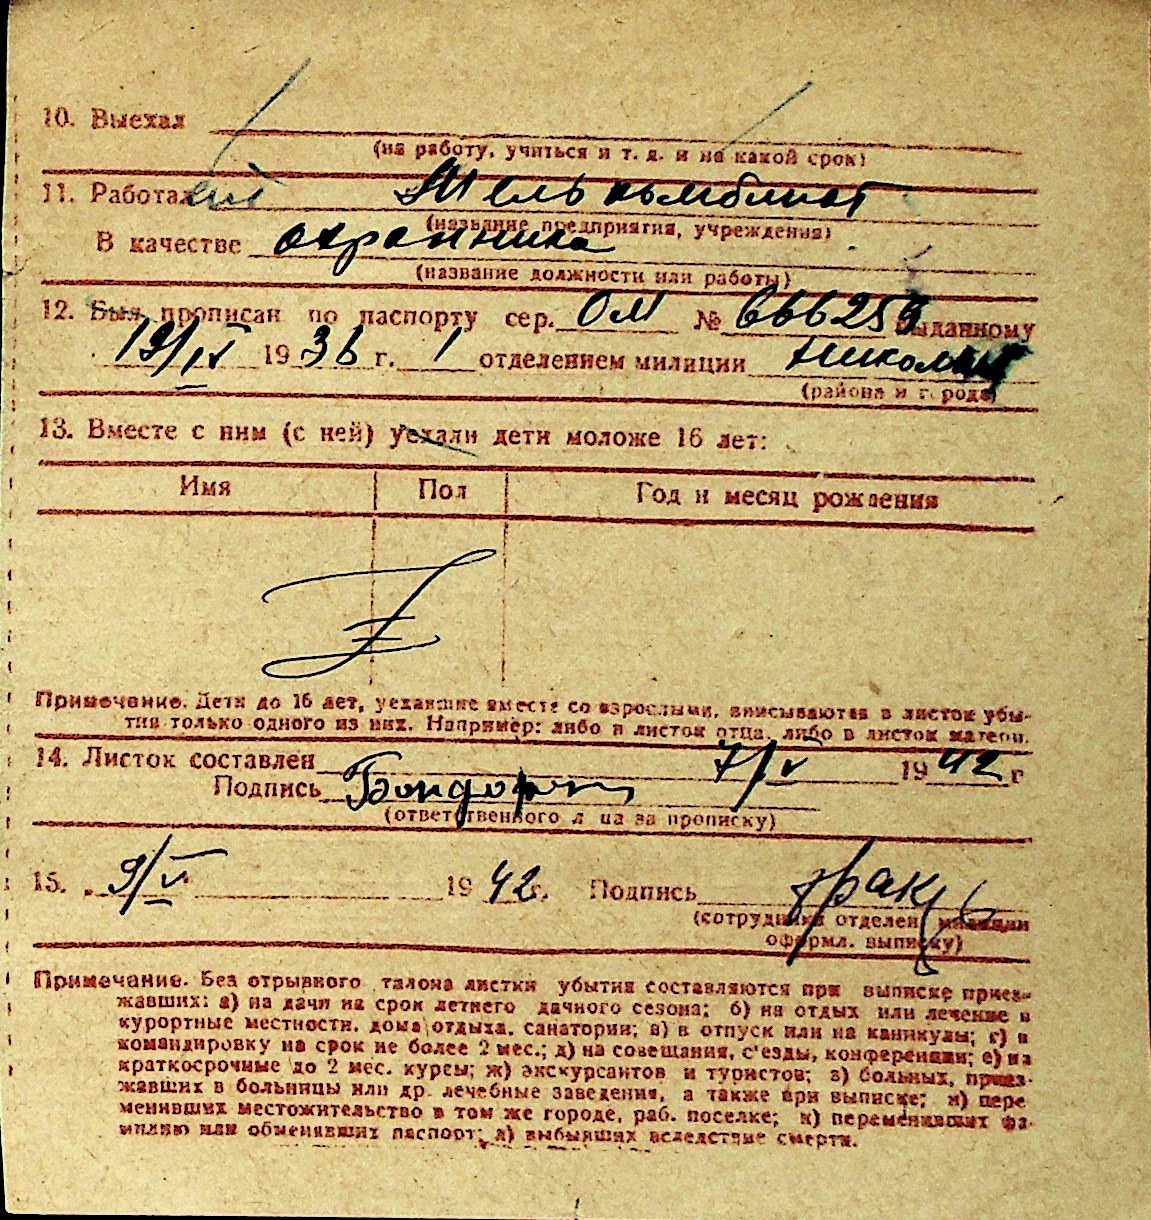 10. Выехал
(на работу, учиться и т. д. и на какой срок)
11. Работал Мелькомбинат
(название предприятия, учреждения)
В качестве охранника
(название должности или работы)
12. Был прописан по паспорту сер. ОМ № 666259 выданному
19/IV 1936 г. 1 отделением милиции
(района и города)
13. Вместе с ним (с ней) уехали дети моложе 16 лет:
Имя Пол Год и месяц рождения
Примечание. Дети до 16 лет, уехавшие вместе со взрослыми, вписываются в листок убы-
тия только одного из них. Например: либо в листок отца, либо в листок матери.
14. Листок составлен 7/V 1942 г
Подпись
(ответственного лица за прописку)
15. 9/V 1942 г. Подпись
(сотрудника отделен. милиции
оформл. выписку)
Примечание. Без отрывного талона листки убытия составляются при выписке приез-
жавших: а) на дачи на срок летнего дачного сезона; б) на отдых или лечение в
курортные местности, дома отдыха, санатории; в) в отпуск или на каникулы; г) в
командировку на срок не более 2 мес.; д) на совещания, с'езды, конференции; е) на
краткосрочные до 2 мес. курсы; ж) экскурсантов и туристов; з) больных, приез-
жавших в больницы или др. лечебные заведения, а также при выписке; и) пере
менивших местожительство в том же городе, раб. поселке; к) переменивших фа-
милию или обменявших паспорт; л) выбывших вследствие смерти.